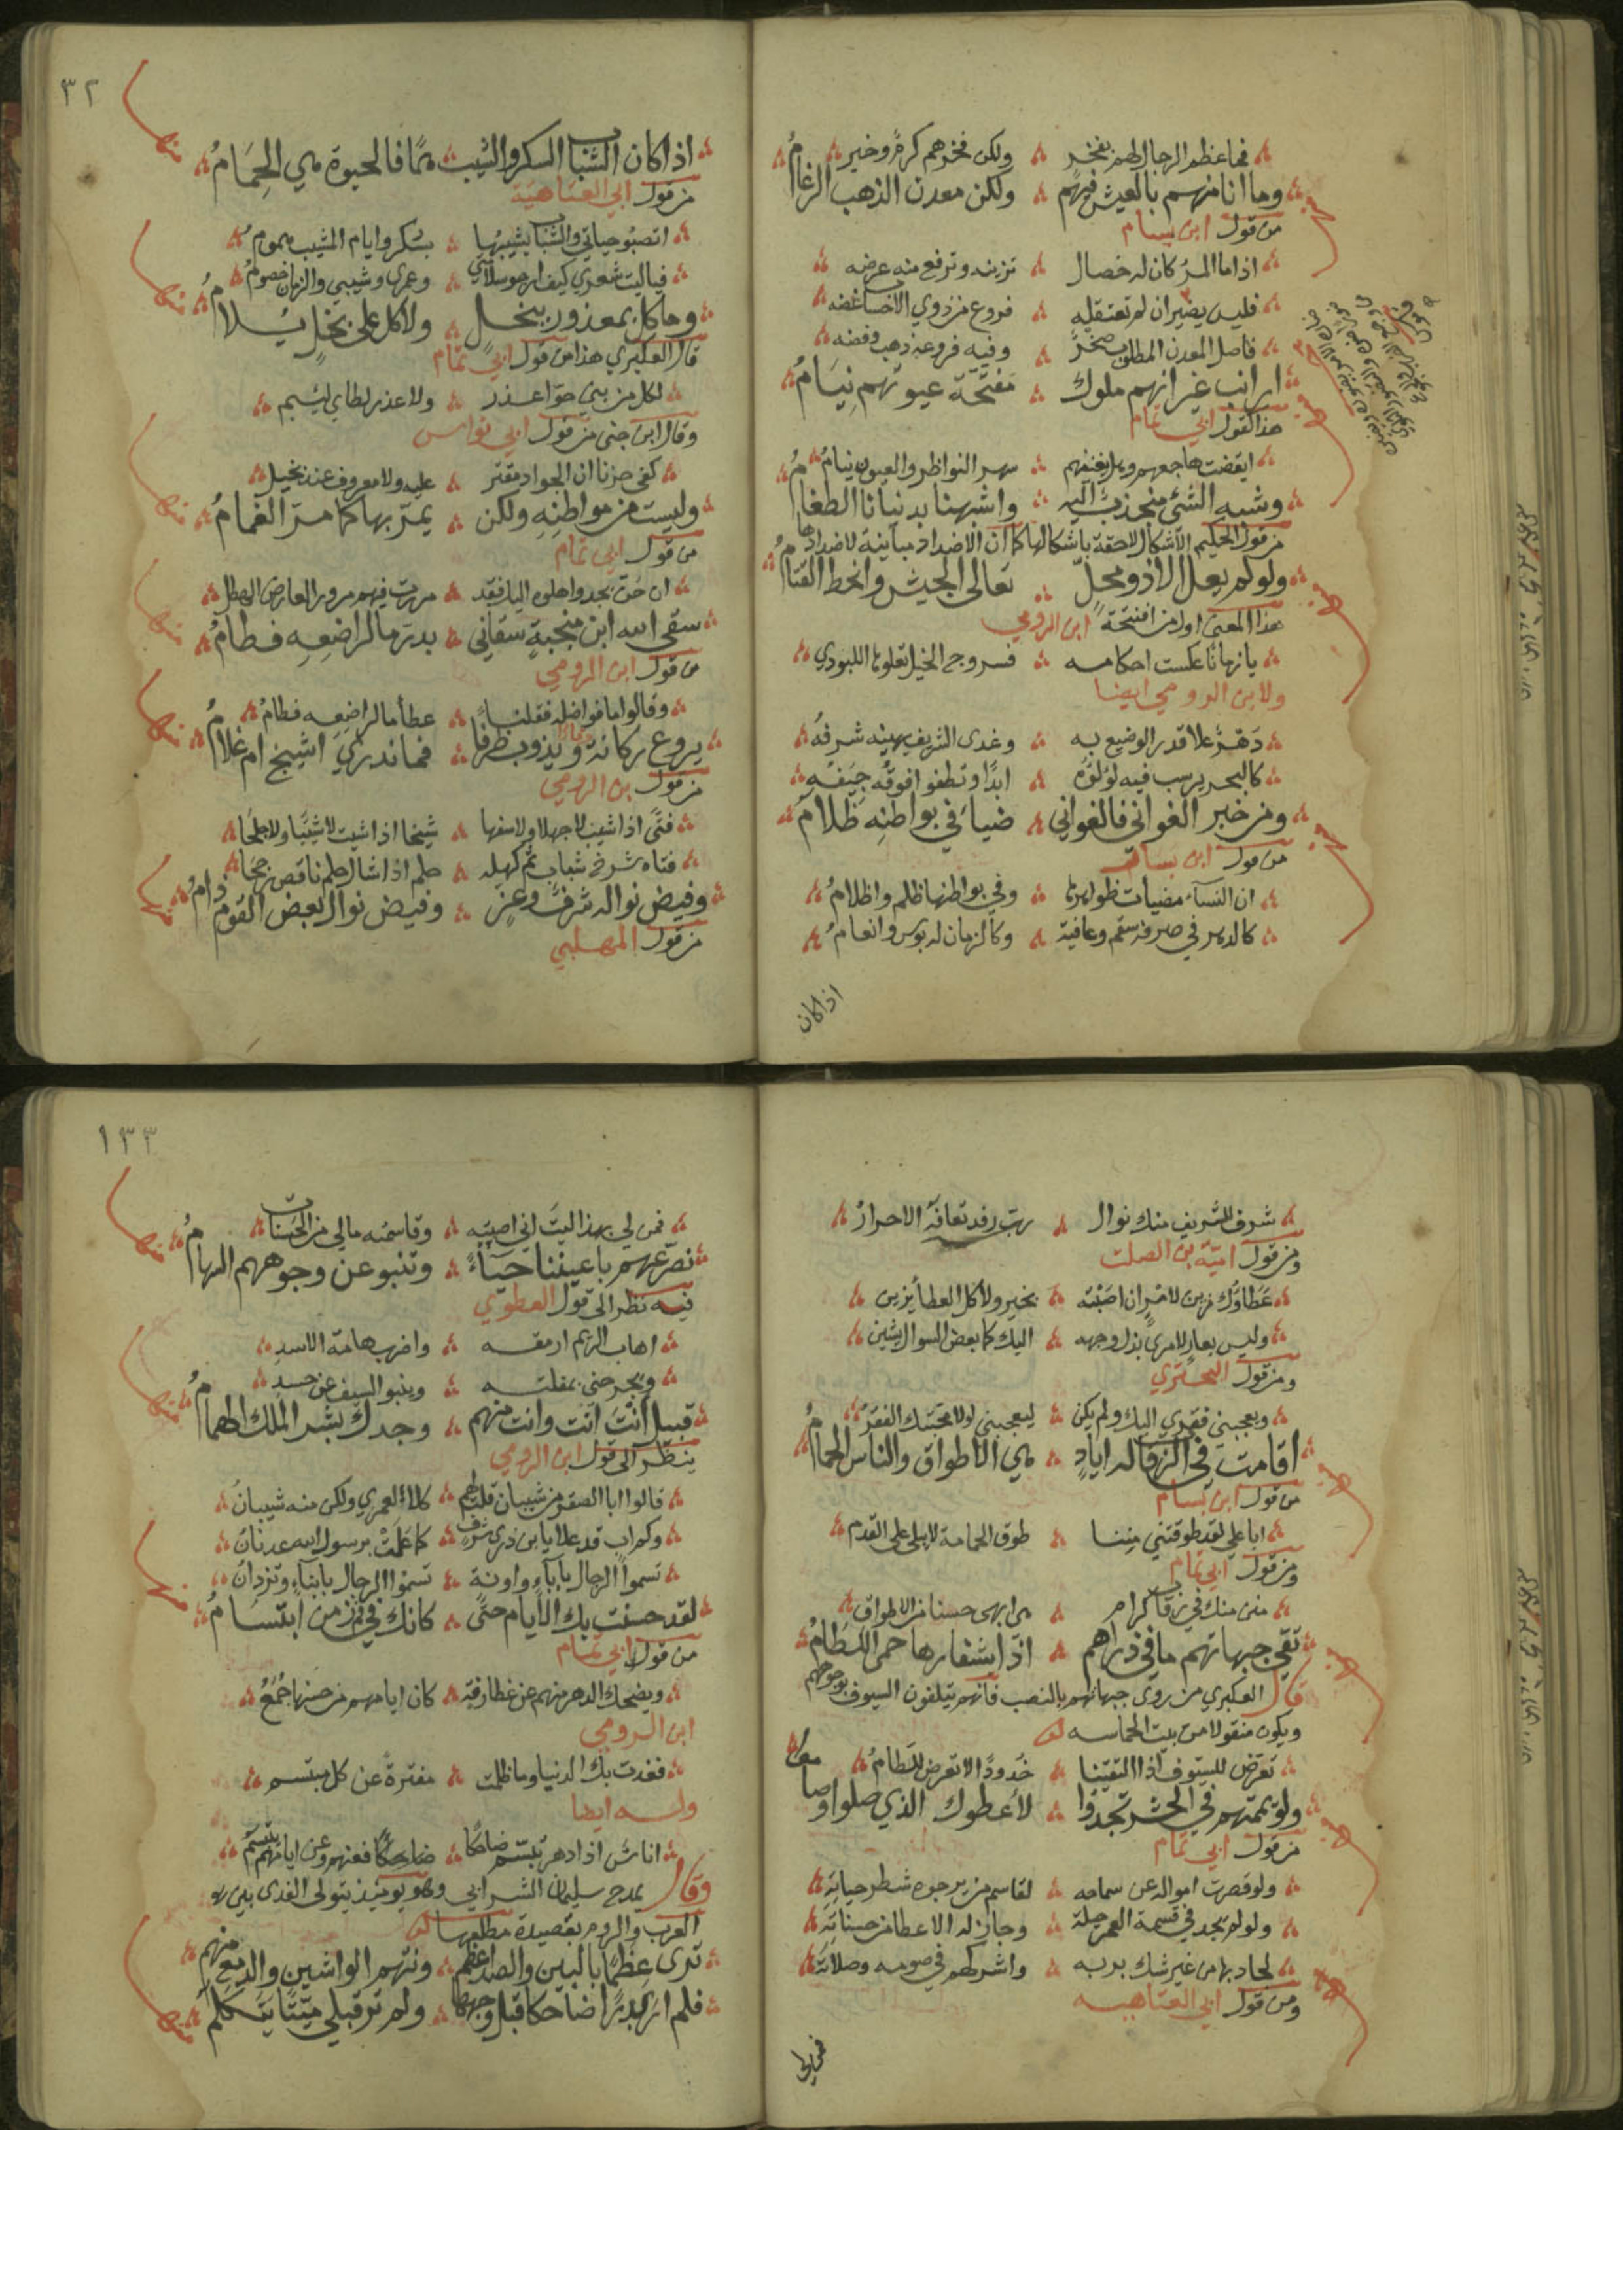 فما عظم الرجال لهم بفخر ولكن فخرهم كرم وخير
وما انا منهم بالعيش فيهم ولكن معدن الذهب الرغام
من قول ابن بسام
اذا ما المرء كان له خصال تزينه وترفع منه عرضه
فليس يضير ان لم تعتقله فروع من ذوي الاحساب غضه
فاصل المعدن المطلوب صخر وفيه فروعه ذهب وفضه
ارانب غير انهم ملوك مفتّحة عيونهم نيام
هذا كقول ابي تمام
ايقضت هاجعهم وهل يغنيهم سهر النواظر والعيون نيام
وشبه الشئ منجذب اليه واشبهنا بدنيانا الطغام
من قول الحكيم الاشكال لاحقة باشكالها كما ان الاضداد مباينة لاضدادها
ولو لم يعل الا ذو محلّ تعالى الجيش وانحط القتام
هذا المعنى اول من افتتحه ابن الرومي
يا زمانا عكست احكامه فسروج الخيل تعلوها اللبودي
ولابن الرومي ايضا
دهر علا قدر الوضيع به وغدى الشريف يهينه شرفه
كالبحر يرسب فيه لؤلؤه ابدًا وتطفو فوقه جيفه
ومن خبر الغواني فالغواني ضياء في بواطنه ظلام
من قول ابن بسام
ان النساء مضيات ظواهرها وفي بواطنها ظلم واظلام
كالدهر في صرفه سقم وعافية وكالزمان له بوس وانعام
اذا كان
٣٢
اذا كان الشباب السكر والشيب همًا فالحيوة هي الحِمَامُ
من قول ابي العتاهية
اتصبو حياتي والشباب يشيبها بسكر وايام المشيب هموم
فياليت شعري كيف ارجو سلامتي وعمري وشيبي والزمان خصوم
وما كل بمعذور ببخل ولا كل على بخل يلام
قال العكبري هذا من قول ابي تمام
لكل من بني حوا عذر ولا عذر لطاي لئيم
وقال ابن جنى من قول ابي نواس
كفى حزنا ان الجواد مقتر عليه ولا معروف عند بخيل
وليست من مواطنِه ولكن يمرّ بها كما مرّ الغمام
من قول ابي تمام
ان حن نجد واهلوه اليك فقد مررت فيهم مرور العارض الهطل
سقى الله ابن منجبةٍ سقاني بدرّ ما لراضعِه فطام
من قول ابن الرومي
وقالوا ما فواضله فقلنا عطا ما لراضعِه فطام
يروع ركانة ويذوب ظرفا فما ندري اشيخ ام غلام
من قول بن الرومي
فتًى اذا شيب لا جهلا ولا سفها شيخا اذا شيت لا شيبًا ولا جلحا
فتاه شرخ شباب ثم كهله حلم اذا شال حلم ناقص رجحا
وفيض نواله شرف وعز وفيض نوال بعض القوم ذام
من قول المهلبي
شرف للشريف منك نوال رب رفد تعافه الاحرار
ومن قول اميّة بن الصلت
عطاؤك زين لامرٍ ان اصبته بخير ولا كل العطا يزين
وليس بعار لامرئ بذل وجهه اليك كما بعض السوال يشين
ومن قول البحتري
ويعجبني فقري اليك ولم يكن ليعجبني لولا محبتك الفقر
اقامت في الرقاب له اياد هي الاطواق والناس الحمام
من قول ابن بسام
ابا علي لقد طوقتني مننا طوق الحمامة لا يبلى على القدم
ومن قول ابي تمام
منن منك في رقاب كرام هي ابهى حسنا من الاطواق
تقي جبهاتهم ما في ذراهم اذا بشفارها حمي اللطام
قال العكبري من روى جبهاتهم بالنصب فانهم يتلقون السيوف بوجوههم
ويكون منقولا من بيت الحماسه
تعرّض للسيوف اذا التقينا خدودًا لا تعرض للطام
ولو يممتهم في الحشر تجدوا لأعطوك الذي صلوا وصاموا
من قول ابي تمام
ولو قصرت امواله عن سماحه لقاسم من يرجوه شطر حياته
ولو لم يجد في قسمة العمر حيلة وجاز له الاعطا من حسناته
لجاد بها من غير شك بربه واشركهم في صومه وصلاته
ومن قول ابي العتاهيه
فمن لي
١٣٣
فمن لي بهذا ليت اني اصبته وقاسمته مالي من الحسنات
نصرعهم باعيننا حياءً وتنبو عن وجوههم السهام
فيه نظر الى قول العطوي
اهاب الريم ارمقه واضرب هامة الاسد
ويجرحني بمقلته وينبو السيف عن جسدِ
قبيل أنت انت وانت منهم وجدك بشر الملك الهمام
ينظر الى قول ابن الرومي
قالوا ابا الصقر من شيبان قلت لهم كلا لعمري ولكن منه شيبان
وكم اب قد علا يا بن ذرى شرف كما علت برسول الله عدنان
تسموا الرجال بآباء واونة تسموا الرجال بابناءٍ وتزدان
لقد حسنت بك الأيام حتّى كانك في فم الزمن ابتسام
من قول ابي تمام
ويضحك الدهر منهم عن غطارفة كان ايامهم من حسنها جُمَعُ
ابن الرومي
فغدت بك الدنيا وما ظلمت مفترة عن كل مبتسم
وله ايضا
اناس اذا دهر تبسم ضاحكا فعنهم وعن ايامهم يتبسّم
وقال يمدح سليمان الشرابي وهو يومئذ يتولى الفدى بين
العرب والروم بقصيدة مطلعها
ترى عِظمًا بالبين والصد اعظم ونتهم الواشين والدمع منهم
فلم ار بدرًا ضاحكا قبل وجهها ولم تر قبلي ميّتًا يتكلّم